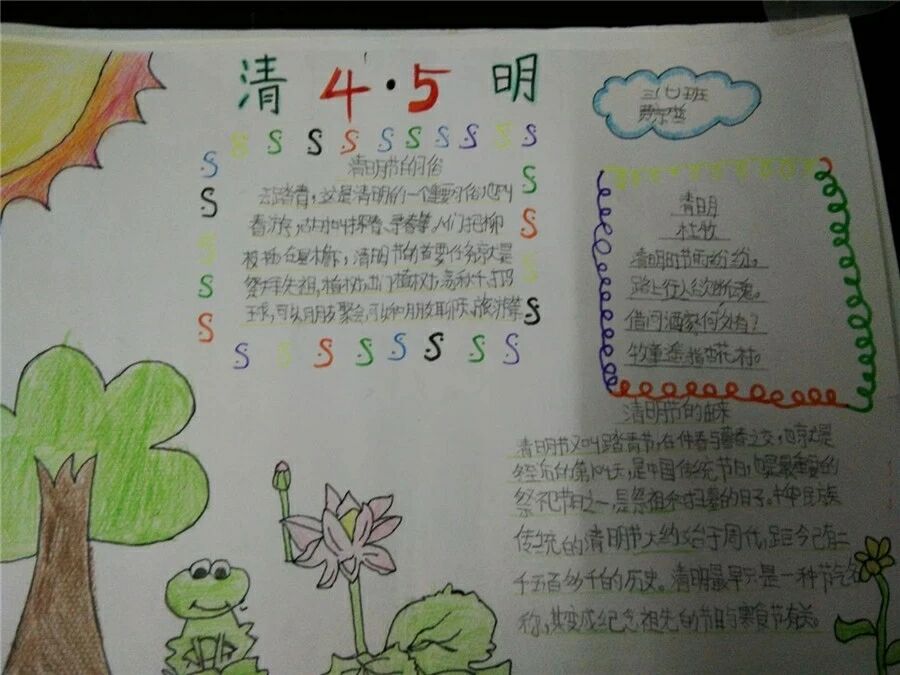 清 4·5 明
三(七)班
清明节的习俗
去踏青，这是清明的一个重要习俗，也叫
春游，古时叫探春、寻春等，人们把柳
清明节的首要任务就是
祭拜先祖，植树，出门植树，荡秋千，打马
球，可以朋友聚会，可以和朋友聊天，旅游等
清明
杜牧
清明时节雨纷纷，
路上行人欲断魂。
借问酒家何处有？
牧童遥指杏花村。
清明节的由来
清明节又叫踏青节，在仲春与暮春之交，也就是
冬至后的第104天，是中国传统节日，也是最重要的
祭祀节日之一，是祭祖和扫墓的日子。中华民族
传统的清明节大约始于周代，距今已有二
千五百多千的历史。清明最早只是一种节气名
称，其变成纪念祖先的节日与寒食节有关。